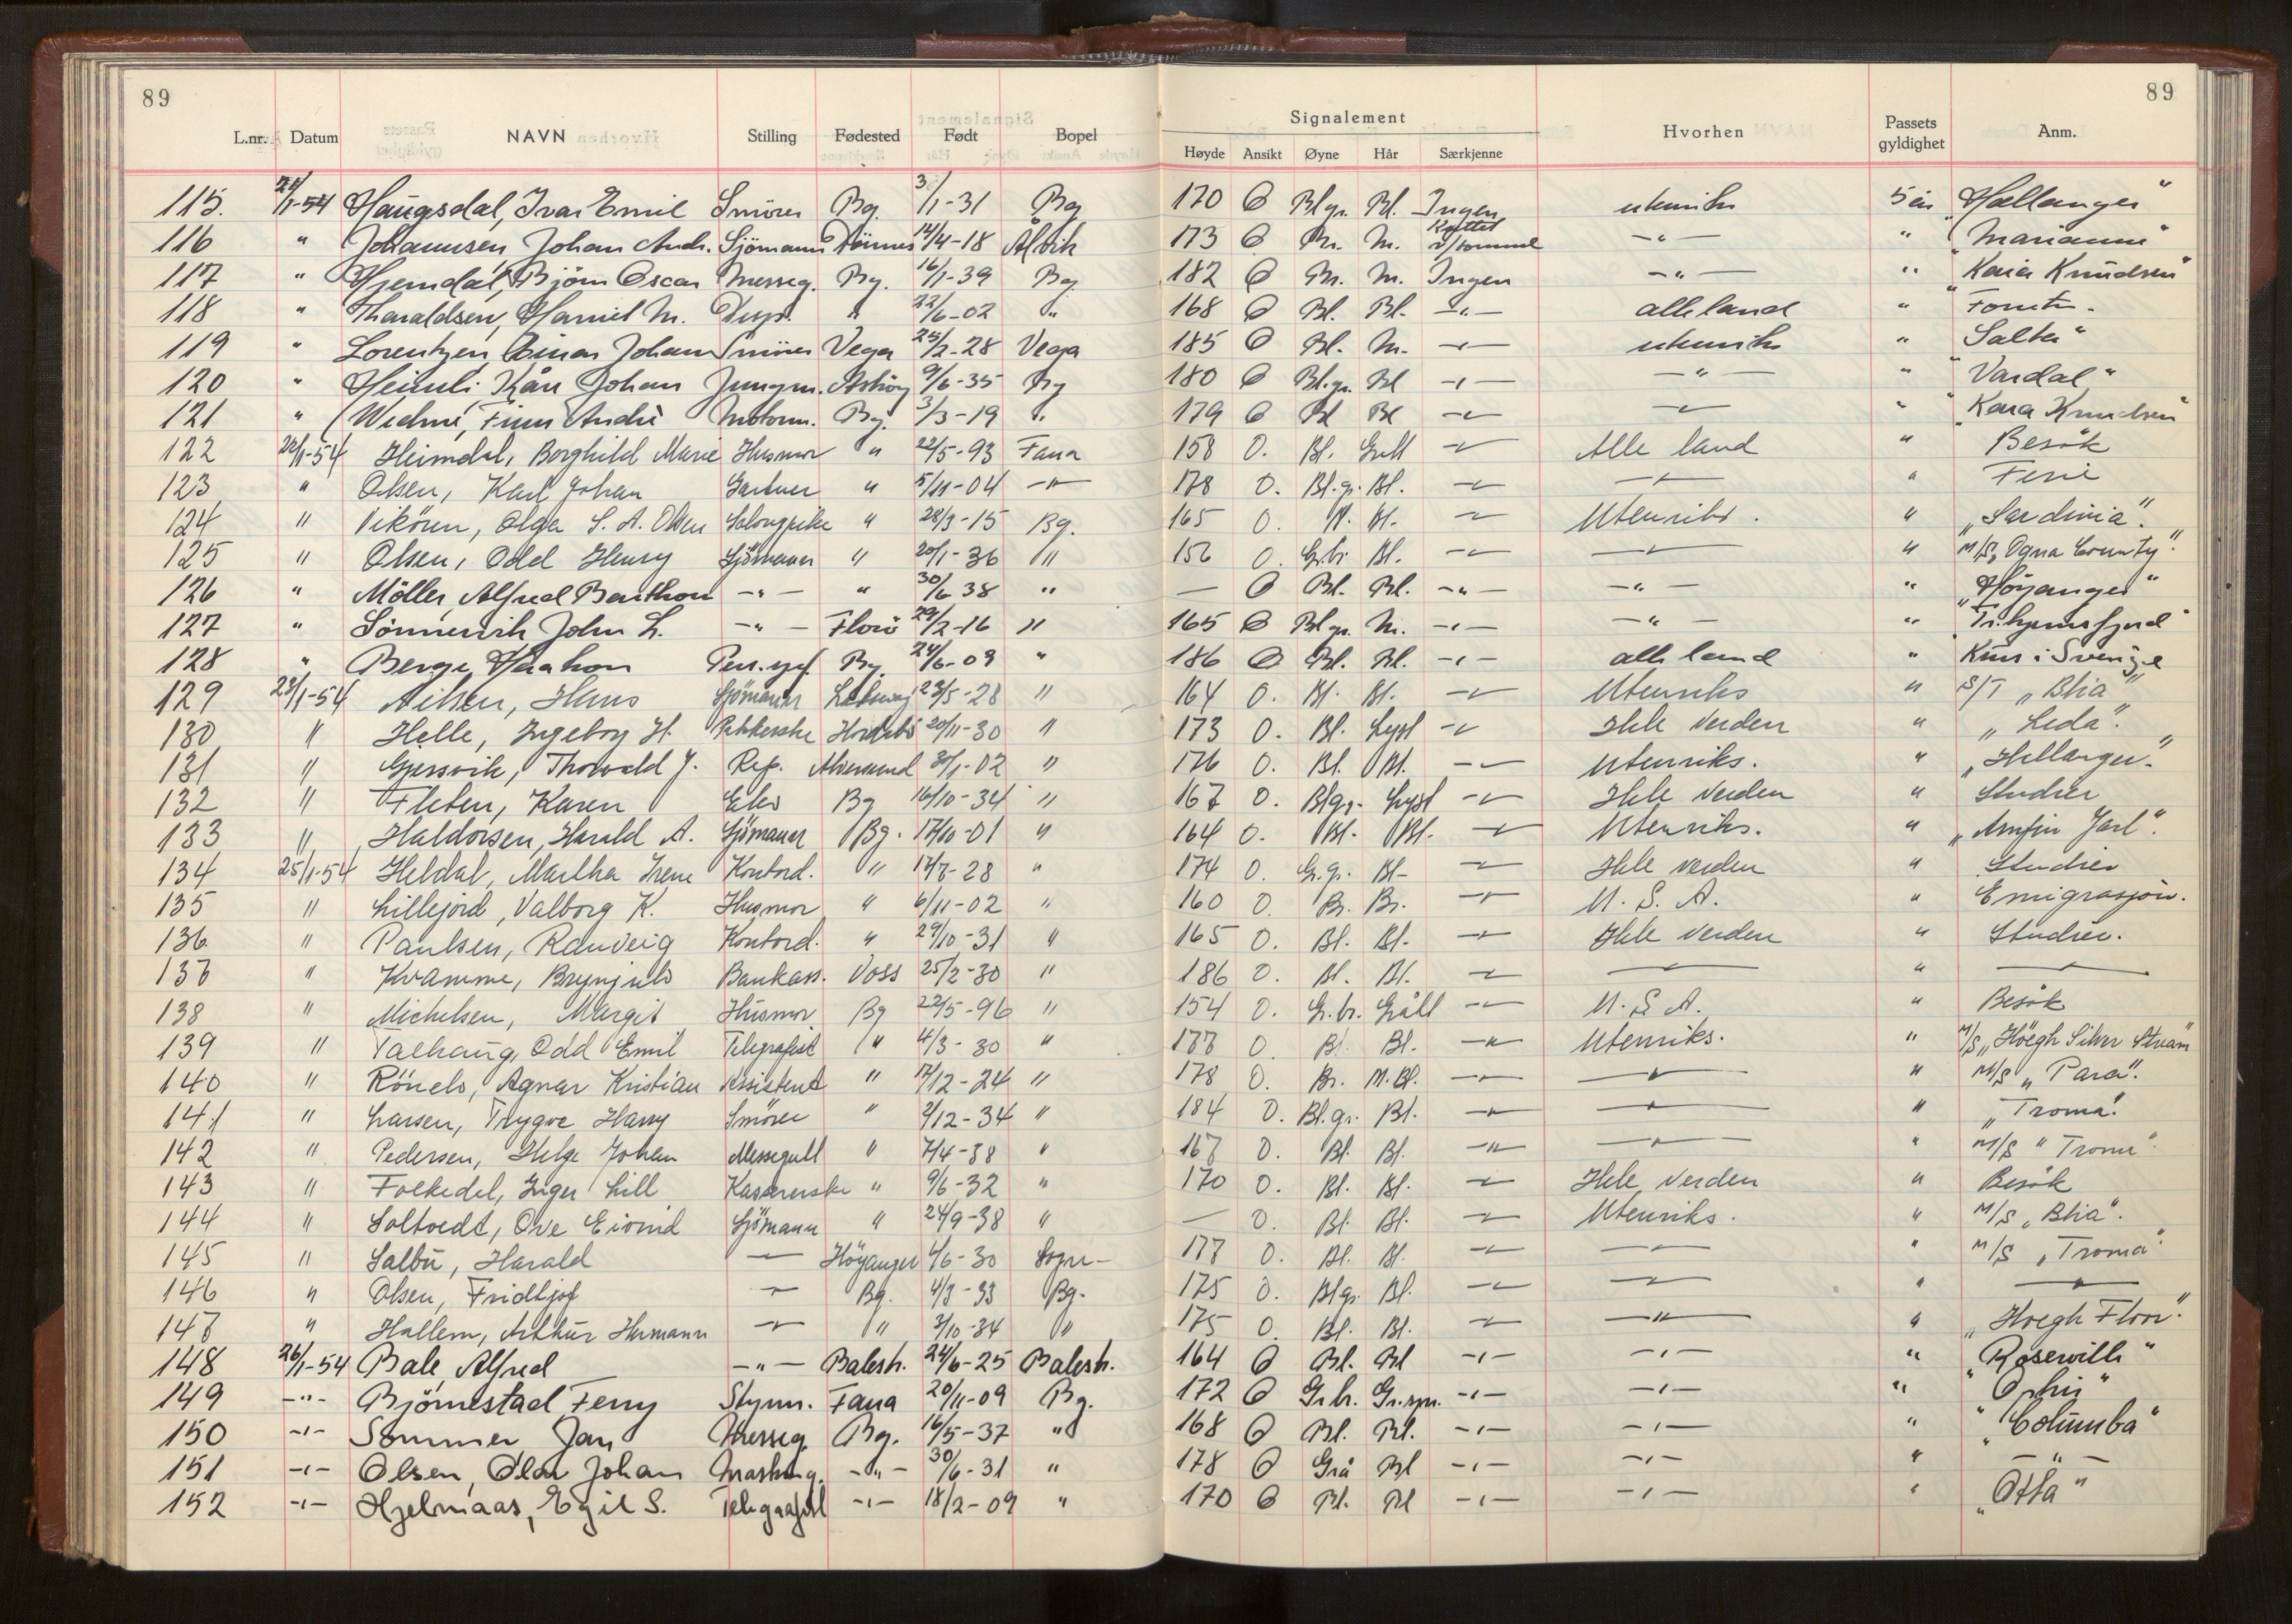 89
89
Signalement
L.nr. Datum NAVN Stilling Fødested Født Bopel Høyde Ansikt Øyne Hår Særkjenne Hvorhen Passets gyldighet Anm.
115. 21/1-54 Haugsdal, Ivar Emil Smörer Bg. 3/1-31 Bg 170 O Bl.gr. Bl. Ingen utenriks 5 år "Hallanger"
116 " Johannsen, Johan Andr. Sjömann Dönnes 14/4-18 Ålvik 173 O Br. M. Kuttet v/tommel -"- " "Marianne"
117 " Hjemdal, Björn Oscar Messeg. Bg. 16/1-39 Bg 182 O Br. M. Ingen -"- " "Kaia Knudsen"
118 " Tharaldsen, M. Disp. " 22/6-02 " 168 O Bl. Bl. -"- alle land "
119 " Lorentzen, Einar Johan Smörer Vega 25/2-28 Vega 185 O Bl. M. -"- utenriks " "Salta"
120 " Heimli Kåre Johan Jungm. Asköy 9/6-35 Bg 180 O Bl.gr. Bl -"- -"- " "Vardal"
121 " Finn André Motorm. Bg. 3/3-19 " 179 O Bl Bl -"- -"- " "Kaia Knudsen"
122 22/1-54 Heimdal, Borghild Marie Husmor " 22/5-93 Fana 158 O. Bl. Grått -"- Alle land " Besök
123 " Olsen, Karl Johan Gartner " 5/11-04 -"- 178 O. Bl.gr. Bl. -"- -"- " Ferie
124 " Vikören, Olga S. A. Olsen Salongpike " 28/3-15 Bg. 165 O. Bl. Bl. -"- Utenriks. " "Sardinia".
125 " Olsen, Odd Henry Sjömann " 20/1-36 " 156 O. Gr.br. Bl. -"- -"- " M/S "Ogna County".
126 " Möller, Alfred Berthon -"- " 30/6 38 " — O Bl. Bl. -"- -"- " "Höyanger"
127 " Sönnervik John L. -"- Florö 29/2-16 " 165 O Bl.gr. M. -"- -"- " "Tr.hjemsfjord"
128 " Berge, Haakon Pens. Bg. 24/6-09 " 186 O Bl. Bl. -"- alle land " Kurs i Sverige
129 23/1-54 Nilsen, Hans Sjömann 23/5-28 " 164 O. Bl. Bl. -"- Utenriks " S/T "Blia"
130 " Helle, Ingeborg H. Pakkerske Hordabö 20/11-30 " 173 O. Bl. Lyst -"- Hele verden " "Leda".
131 " Gjersvik, Thorvald J. Rep. Alversund 30/1-02 " 176 O. Bl. Bl. -"- Utenriks. " "Hallanger".
132 " Fleten, Karen Elev Bg 16/10-34 " 167 O. Bl.gr. Lyst -"- Hele verden " Studier
133 " Haldorsen, Harald A. Sjömann Bg. 17/10-01 " 164 O. Bl. Bl. -"- Utenriks. " "Arnfin Jarl".
134 25/1-54 Heldal, Martha Irene Kontord. " 17/7-28 " 174 O. Gr.gr. Bl- -"- Hele verden " Studier
135 " Lillejord, Valborg K. Husmor " 6/11-02 " 160 O. Br. Br. -"- U. S. A. " Emigrasjon.
136. " Paulsen, Randveig Kontord. " 29/10-31 " 165 O. Bl. Bl. -"- Hele verden " Studier.
137 " Kvamme, Brynjulv Bankass. Voss 25/2-30 " 186 O. Bl. Bl. -"- -"- " -"-
138 " Michelsen, Margit Husmor Bg 22/5-96 " 154 O. Gr.br. Grått -"- U. S. A. " Besök
139 " Talhaug, Odd Emil Telegrafist " 4/3-30 " 177 O Bl. Bl. -"- Utenriks. " M/S "Höegh Silver Stream"
140 " Rönels, Agnar Kristian Assistent " 17/12-24 " 178 O. Br. M.Bl. -"- -"- " M/S "Para".
141 " Larsen, Trygve Harry Smörer " 2/12-34 " 184 O. Bl.gr. Bl. -"- -"- " "Troma".
142 " Pedersen, Helge Johan Messegutt " 7/4-38 " 167 O. Bl. Bl. -"- -"- " M/S "Troma".
143 " Folkedel, Inger Lill Kassererske " 9/6-32 " 170 O. Bl. Bl. -"- Hele verden " Besök
144 " Soltvedt, Ove Eivind Sjömann " 24/9-38 " — O. Bl. Bl. -"- Utenriks. " M/S "Blia".
145 " Salbu, Harald -"- Höyanger 4/6-30 Sogn- 177 O. Bl. Bl. -"- -"- " M/S "Troma".
146 " Olsen, Fridtjof -"- Bg. 4/3-33 Bg. 175 O. Bl.gr. Bl. -"- -"- " -"-
147 " Hallem, Arthur Hermann -"- " 3/10-34 " 175 O. Bl. Bl. -"- -"- " "Hoegh Floor".
148 26/1-54 Bale, Alfred -"- Balestr. 24/6-25 Balestr. 164 O Bl. Bl -"- -"- " "Roseville"
149 -"- Björnestad Ferry Styrm. Fana 20/11-09 Bg. 172 O Gr.br. Gr.spr. -"- -"- " "Ophir"
150 -"- Sommer, Jan Messeg. Bg. 16/5-37 " 168 O Bl. Bl. -"- -"- " "Columba"
151 -"- Olsen, Olav Johan Masking. -"- 30/6-31 " 178 O Grå Bl -"- -"- " -"-
152 -"- Hjelmaas, Egil S. Telegrafist -"- 18/2-09 " 170 O Bl. Bl -"- -"- " "Otta"